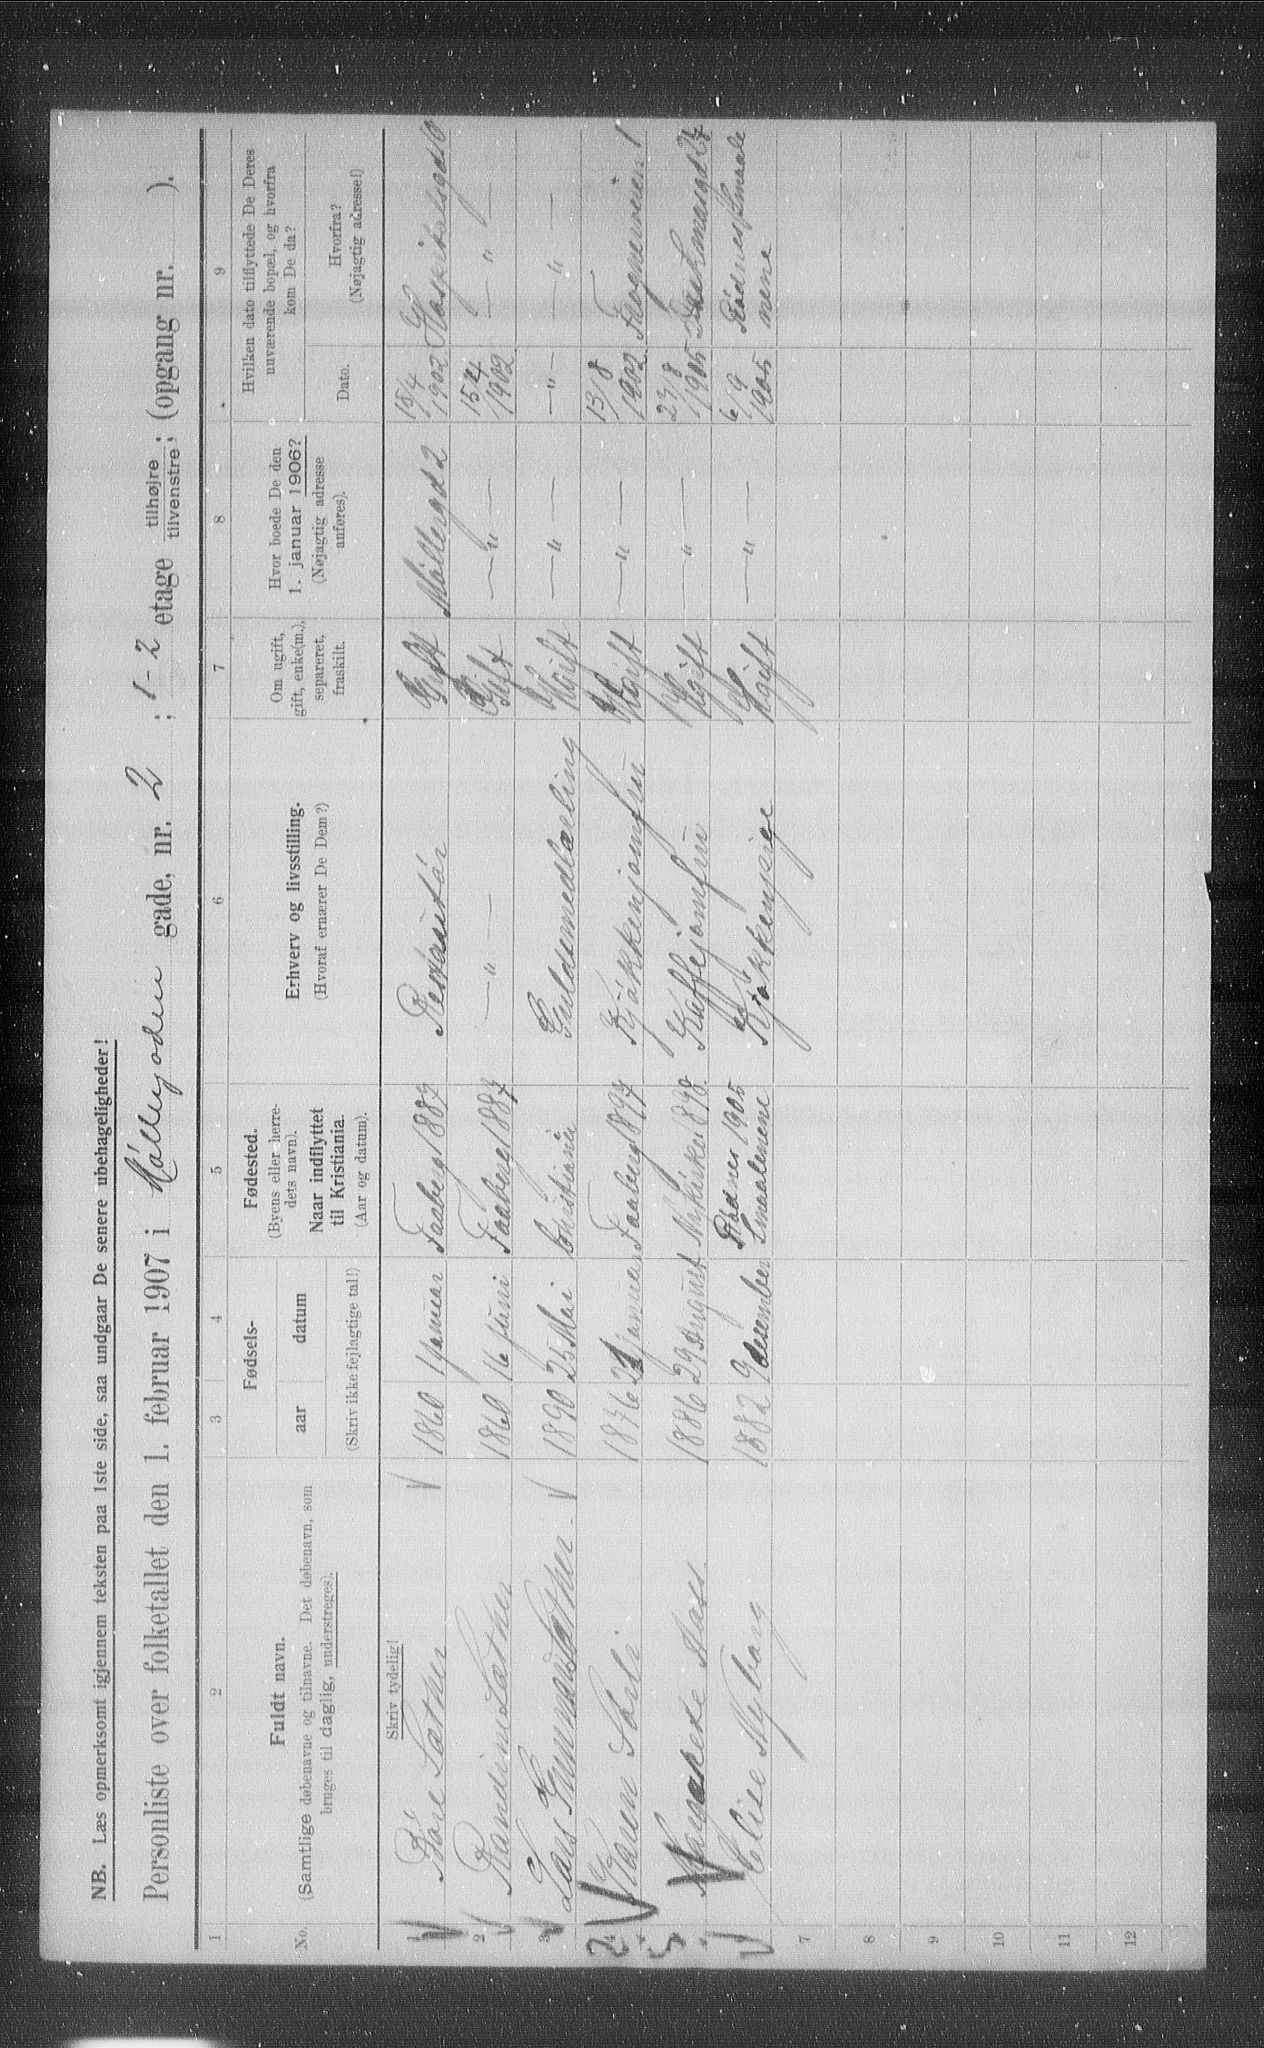 NB. Læs opmerksomt igjennem teksten paa 1ste side, saa undgaar De senere ubehageligheder!
Personliste over folketallet den 1. februar 1907 i Møllergaden gade, nr. 2 ; 1-2 etage tilhøjre / tilvenstre; (opgang nr. ).
1 2 3 4 5 6 7 8 9
No.
Fuldt navn.
(Samtlige døbenavne og tilnavne. Det døbenavn, som
bruges til daglig, understreges).
Fødsels-
aar datum
(Skriv ikke fejlagtige tal!)
Fødested.
(Byens eller herre-
dets navn).
Naar indflyttet
til Kristiania.
(Aar og datum).
Erhverv og livsstilling.
(Hvoraf ernærer De Dem?)
Om ugift,
gift, enke(m.),
separeret,
fraskilt.
Hvor boede De den
1. januar 1906?
(Nøjagtig adresse
anføres).
Hvilken dato tilflyttede De Deres
nuværende bopæl, og hvorfra
kom De da?
Dato.
Hvorfra?
(Nøjagtig adresse!)
Skriv tydelig!
1 Sæther 1860 1 Januar Faaberg 1887 Restautør Gift Møllergd 2 15/4 1902 Hospitalsgd 10
2 Randine Sæther 1860 16 Juni Faaberg 1887 — " — Gift — " — 15 4 1902 — " —
3 Lars Sæther 1890 25 Mai Christiania Ugift — " — — " — — " —
4 Karen 1876 21 Januar Faaberg 1897 Kjøkkenjomfru Ugift — " — 13/8 1902 Frognerveien 1
5 1886 29 August Kaffejomfru Ugift — " — 27/8 1905
6 Elise Nyborg 1882 9 desember Rødnes 1905 Smaalenene Kjøkkenpige Ugift — " — 6/9 1905 Rødnes Smaale
nene
7
8
9
10
11
12